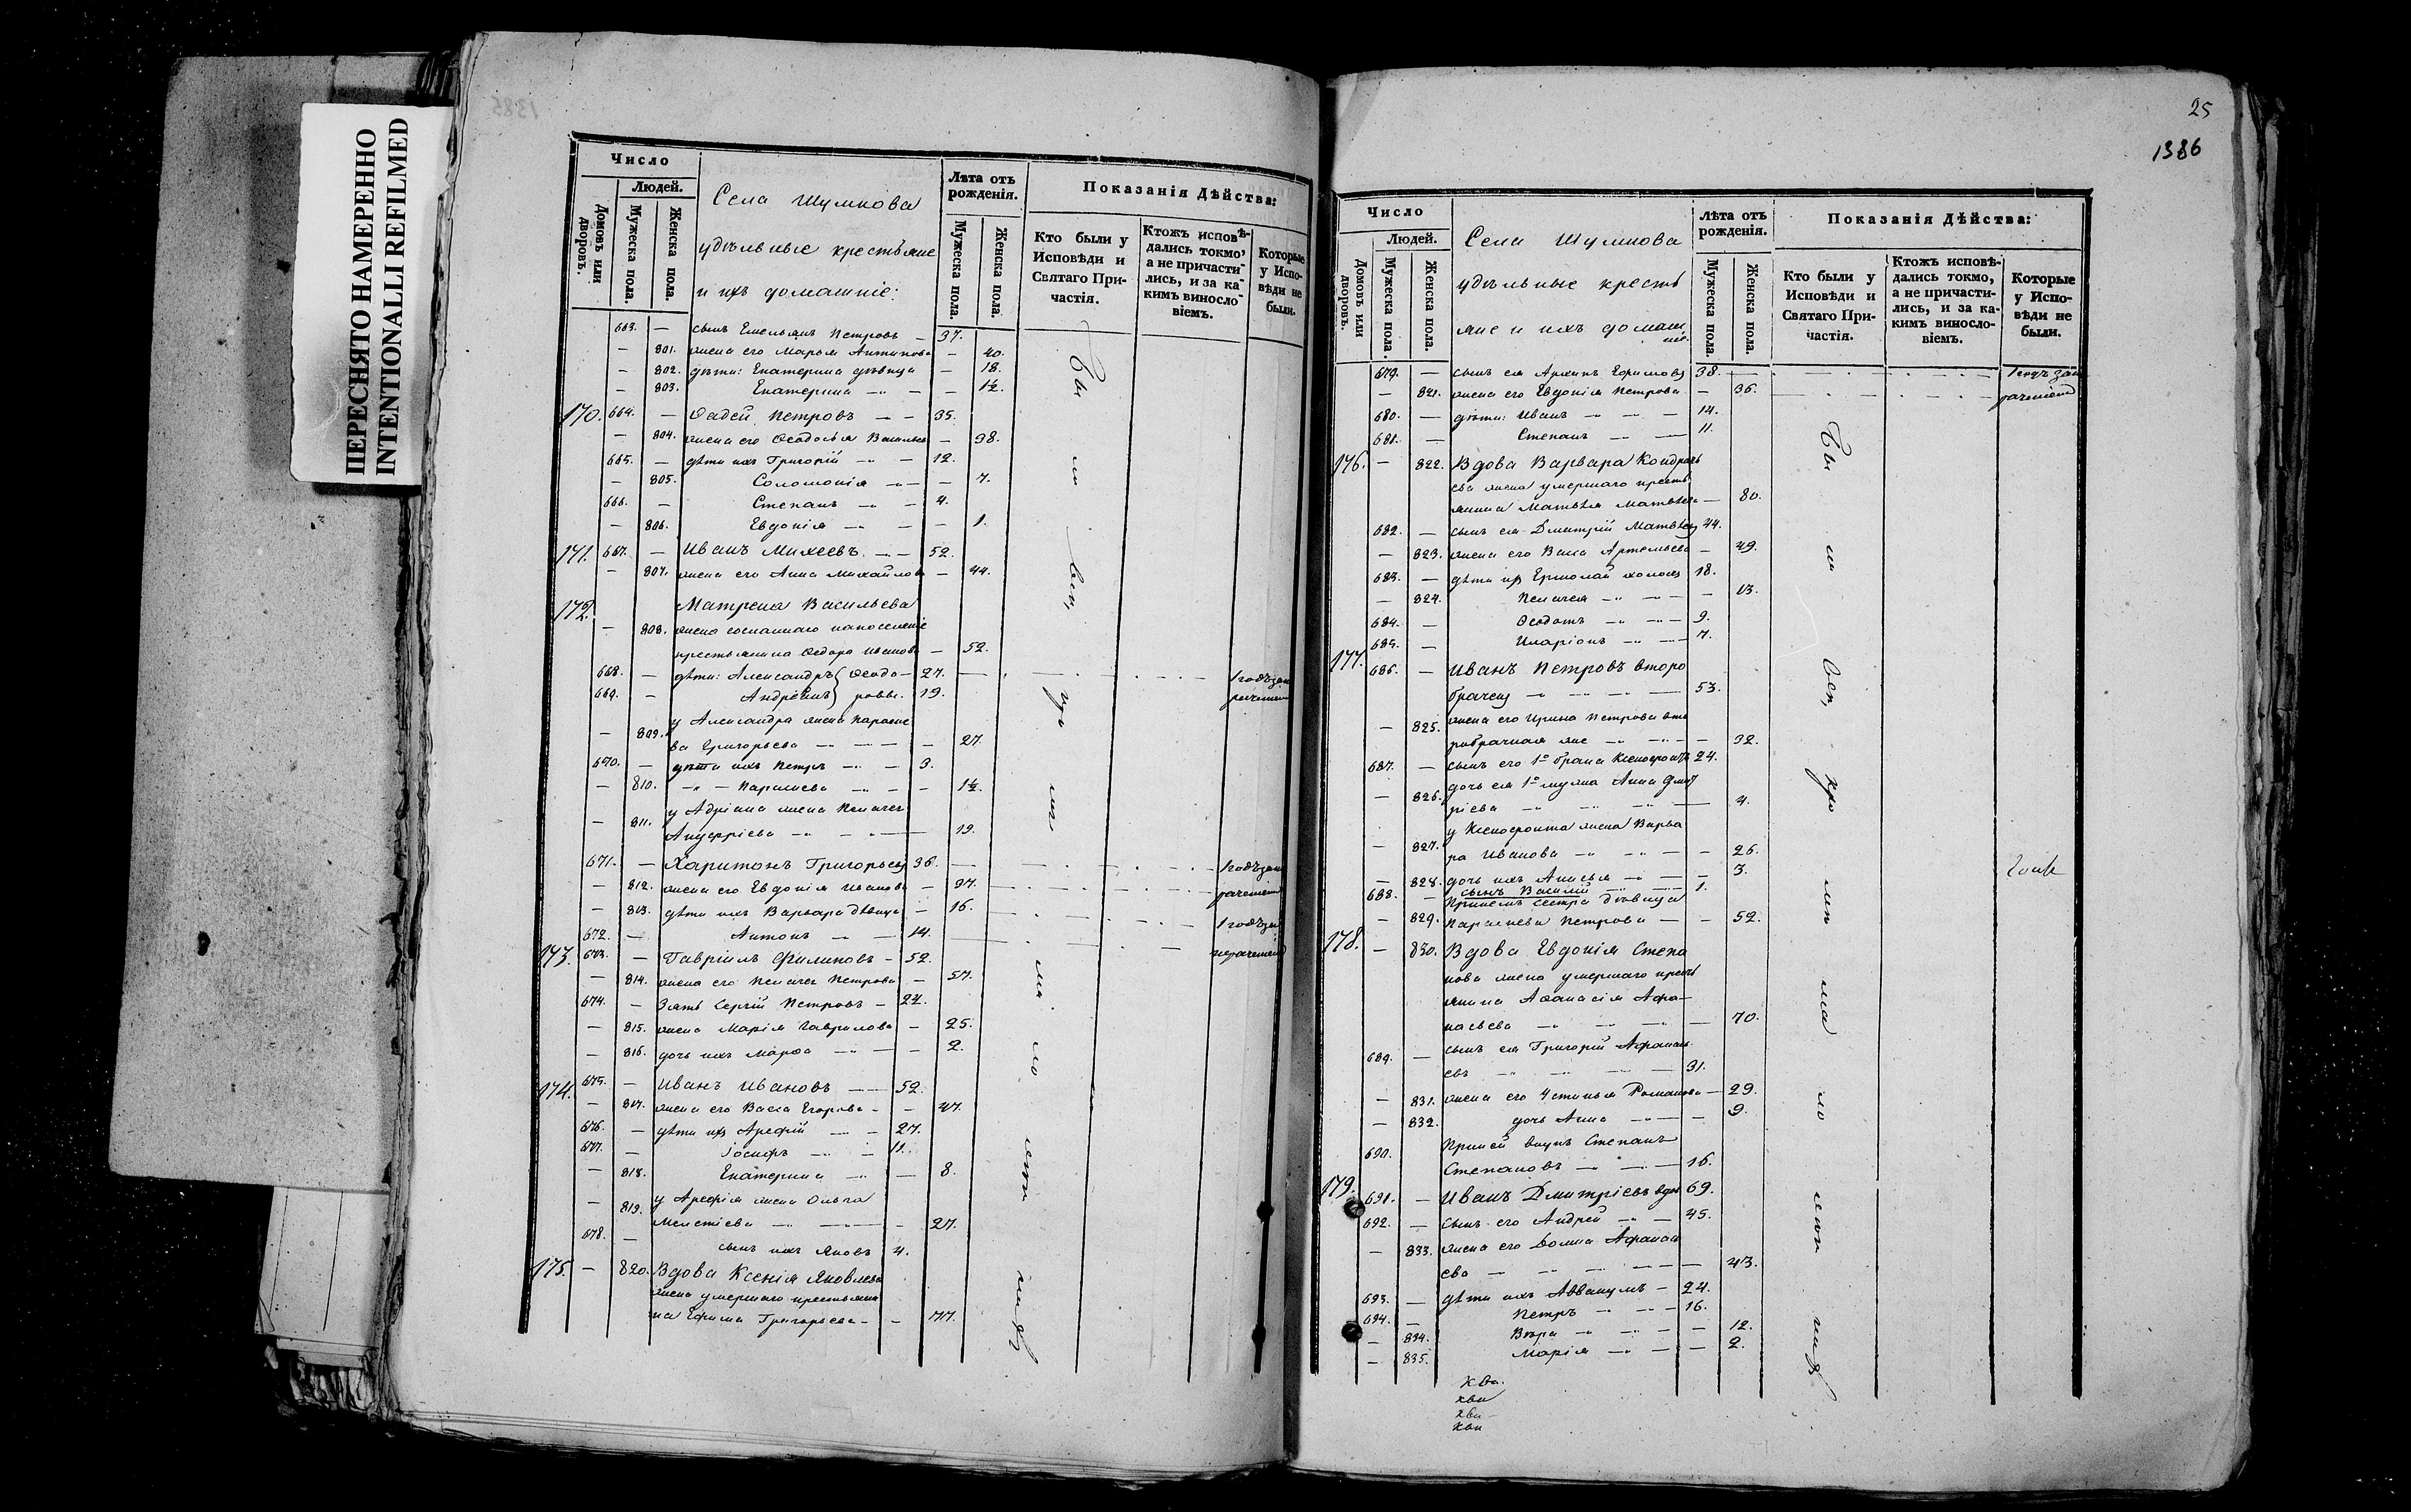 ПЕРЕСНЯТО НАМЕРЕННО
INTENTIONALLI REFILMED
Число
Людей.
Домовъ или дворовъ.
Мужеска пола.
Женска пола.
Села Шумкова
удѣльные крестьяне
и ихъ домашніе:
Лѣта отъ рожденія.
Мужеска пола.
Женска пола.
Показанія Дѣйства:
Кто были у Исповѣди и Святаго Причастія.
Ктожъ исповѣдались токмо, а не причастились, и за какимъ винословіемъ.
Которые у Исповѣди не были.
663. — сынъ Емельянъ Петровъ — 37.
— 801. жена его Марья Антипова — 40.
— 802. дѣти: Екатерина дѣвица — 18.
— 803. Екатерина — — 1½.
170. 664. — Ѳадей Петровъ — — 35.
— 804. жена его Ѳеодосья Васильева — 38.
665. — дѣти ихъ Григорій — — 12.
— 805. Соломонія — — 7.
666. — Степанъ — — 4.
— 806. Евдокія — — — 1.
171. 667. — Иванъ Михеевъ — — 52.
— 807. жена его Анна Михайлова — 44.
172. Матрена Васильева
— 808. жена сосланнаго на поселеніе
крестьянина Ѳедора Иванова — 52.
668. — дѣти: Александръ Ѳеодо- 27.
669. — Андреянъ ровы. 19.
у Александра жена Параске
— 809. ва Григорьева — — — 27.
670. — дѣти ихъ Петръ — — 3.
— 810. — Параскева — — 1½.
у Адріана жена Пелагея
— 811. Ануфріева — — 19.
671. — Харитонъ Григорьевъ 36.
— 812. жена его Евдокія Иванова — 37.
— 813. дѣти ихъ Варвара дѣвица — 16.
672. — Антонъ — — 14.
173. 673. — Гавріилъ Филиповъ — 52.
— 814. жена его Пелагея Петрова — 57.
674. — Зять Сергій Петровъ — 22.
— 815. жена Марія Гаврилова — 25.
— 816. дочь ихъ Марѳа — — 2.
174. 675. — Иванъ Ивановъ — — 52.
— 817. жена его Васса Егорова — — 47.
676. — дѣти ихъ Арефій — — 27.
677. — Іосифъ — — 11.
— 818. Екатерина — — 8.
у Арефія жена Ольга
— 819. Мелетіева — — — 27.
678. — сынъ ихъ Яковъ 4.
175. — 820. Вдова Ксенія Яковлева
жена умершаго крестьяни
на Ефима Григорьева — — 77.
25
1386
Число
Людей.
Домовъ или дворовъ.
Мужеска пола.
Женска пола.
Села Шумкова
удѣльные кресть
яне и ихъ домаш
ніе
Лѣта отъ рожденія.
Мужеска пола.
Женска пола.
Показанія Дѣйства:
Кто были у Исповѣди и Святаго Причастія.
Ктожъ исповѣдались токмо, а не причастились, и за какимъ винословіемъ.
Которые у Исповѣди не были.
679. — сынъ ея Архипъ Ефимовъ 38.
— 821. жена его Евдокія Петрова — 36.
680. — дѣти: Иванъ — — 14.
681. — Степанъ — — 11.
176. — 822. Вдова Варвара Кондрать
ева жена умершаго кресть
янина Матвѣя Матвѣева — 80.
682. — сынъ ея Дмитрій Матвѣевъ 44.
— 823. жена его Васса Артемьева — 49.
683. — дѣти их Ермолай холост 18.
— 824. Пелагея — — — 13.
684. — Ѳеодотъ — — 9.
685. — Иларіонъ — — 7.
177. 686. — Иванъ Петровъ второ
брачный — — — 53.
— 825. жена его Ирина Петрова вто
робрачная же — — — 32.
687. — сынъ его 1го брака Ксенофонтъ 24.
— 826. дочь ея 1го мужа Анна Дмит
ріева — — — 4.
у Ксенофонта жена Варва
— 827. ра Иванова — — — 26.
— 828. дочь ихъ Анисья — — 3.
688. — сынъ Василій — — 1.
При немъ сестра дѣвица
— 829. Параскева Петрова — — 52.
178. — 830. Вдова Евдокія Степа
нова жена умершаго кресть
янина Аѳанасія Афа-
насьева — — — 70.
689. — сынъ ея Григорій Афанась
евъ — — — 31.
— 831. жена его Устинья Романова — 29.
— 832. дочь Анна — — 9.
690. При ней внукъ Степанъ
Степановъ — — — 16.
179. 691. — Иванъ Дмитріевъ вдов 69.
692. — сынъ его Андрей — — 45.
— 833. жена его Домна Афанась
ева — — — — 43.
693. — дѣти ихъ Аввакумъ — 24.
694. — Петръ — — 16.
— 834. Вѣра — — — 12.
— 835. Марія — — — 2.